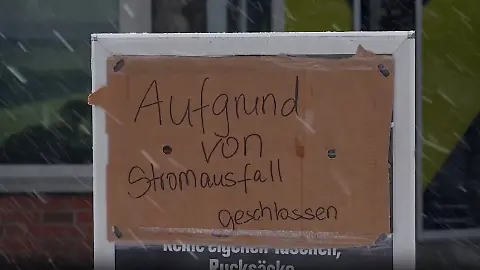 Aufgrund
von
Stromausfall
geschlossen
keine eigenen Taschen,
Rucksäcke